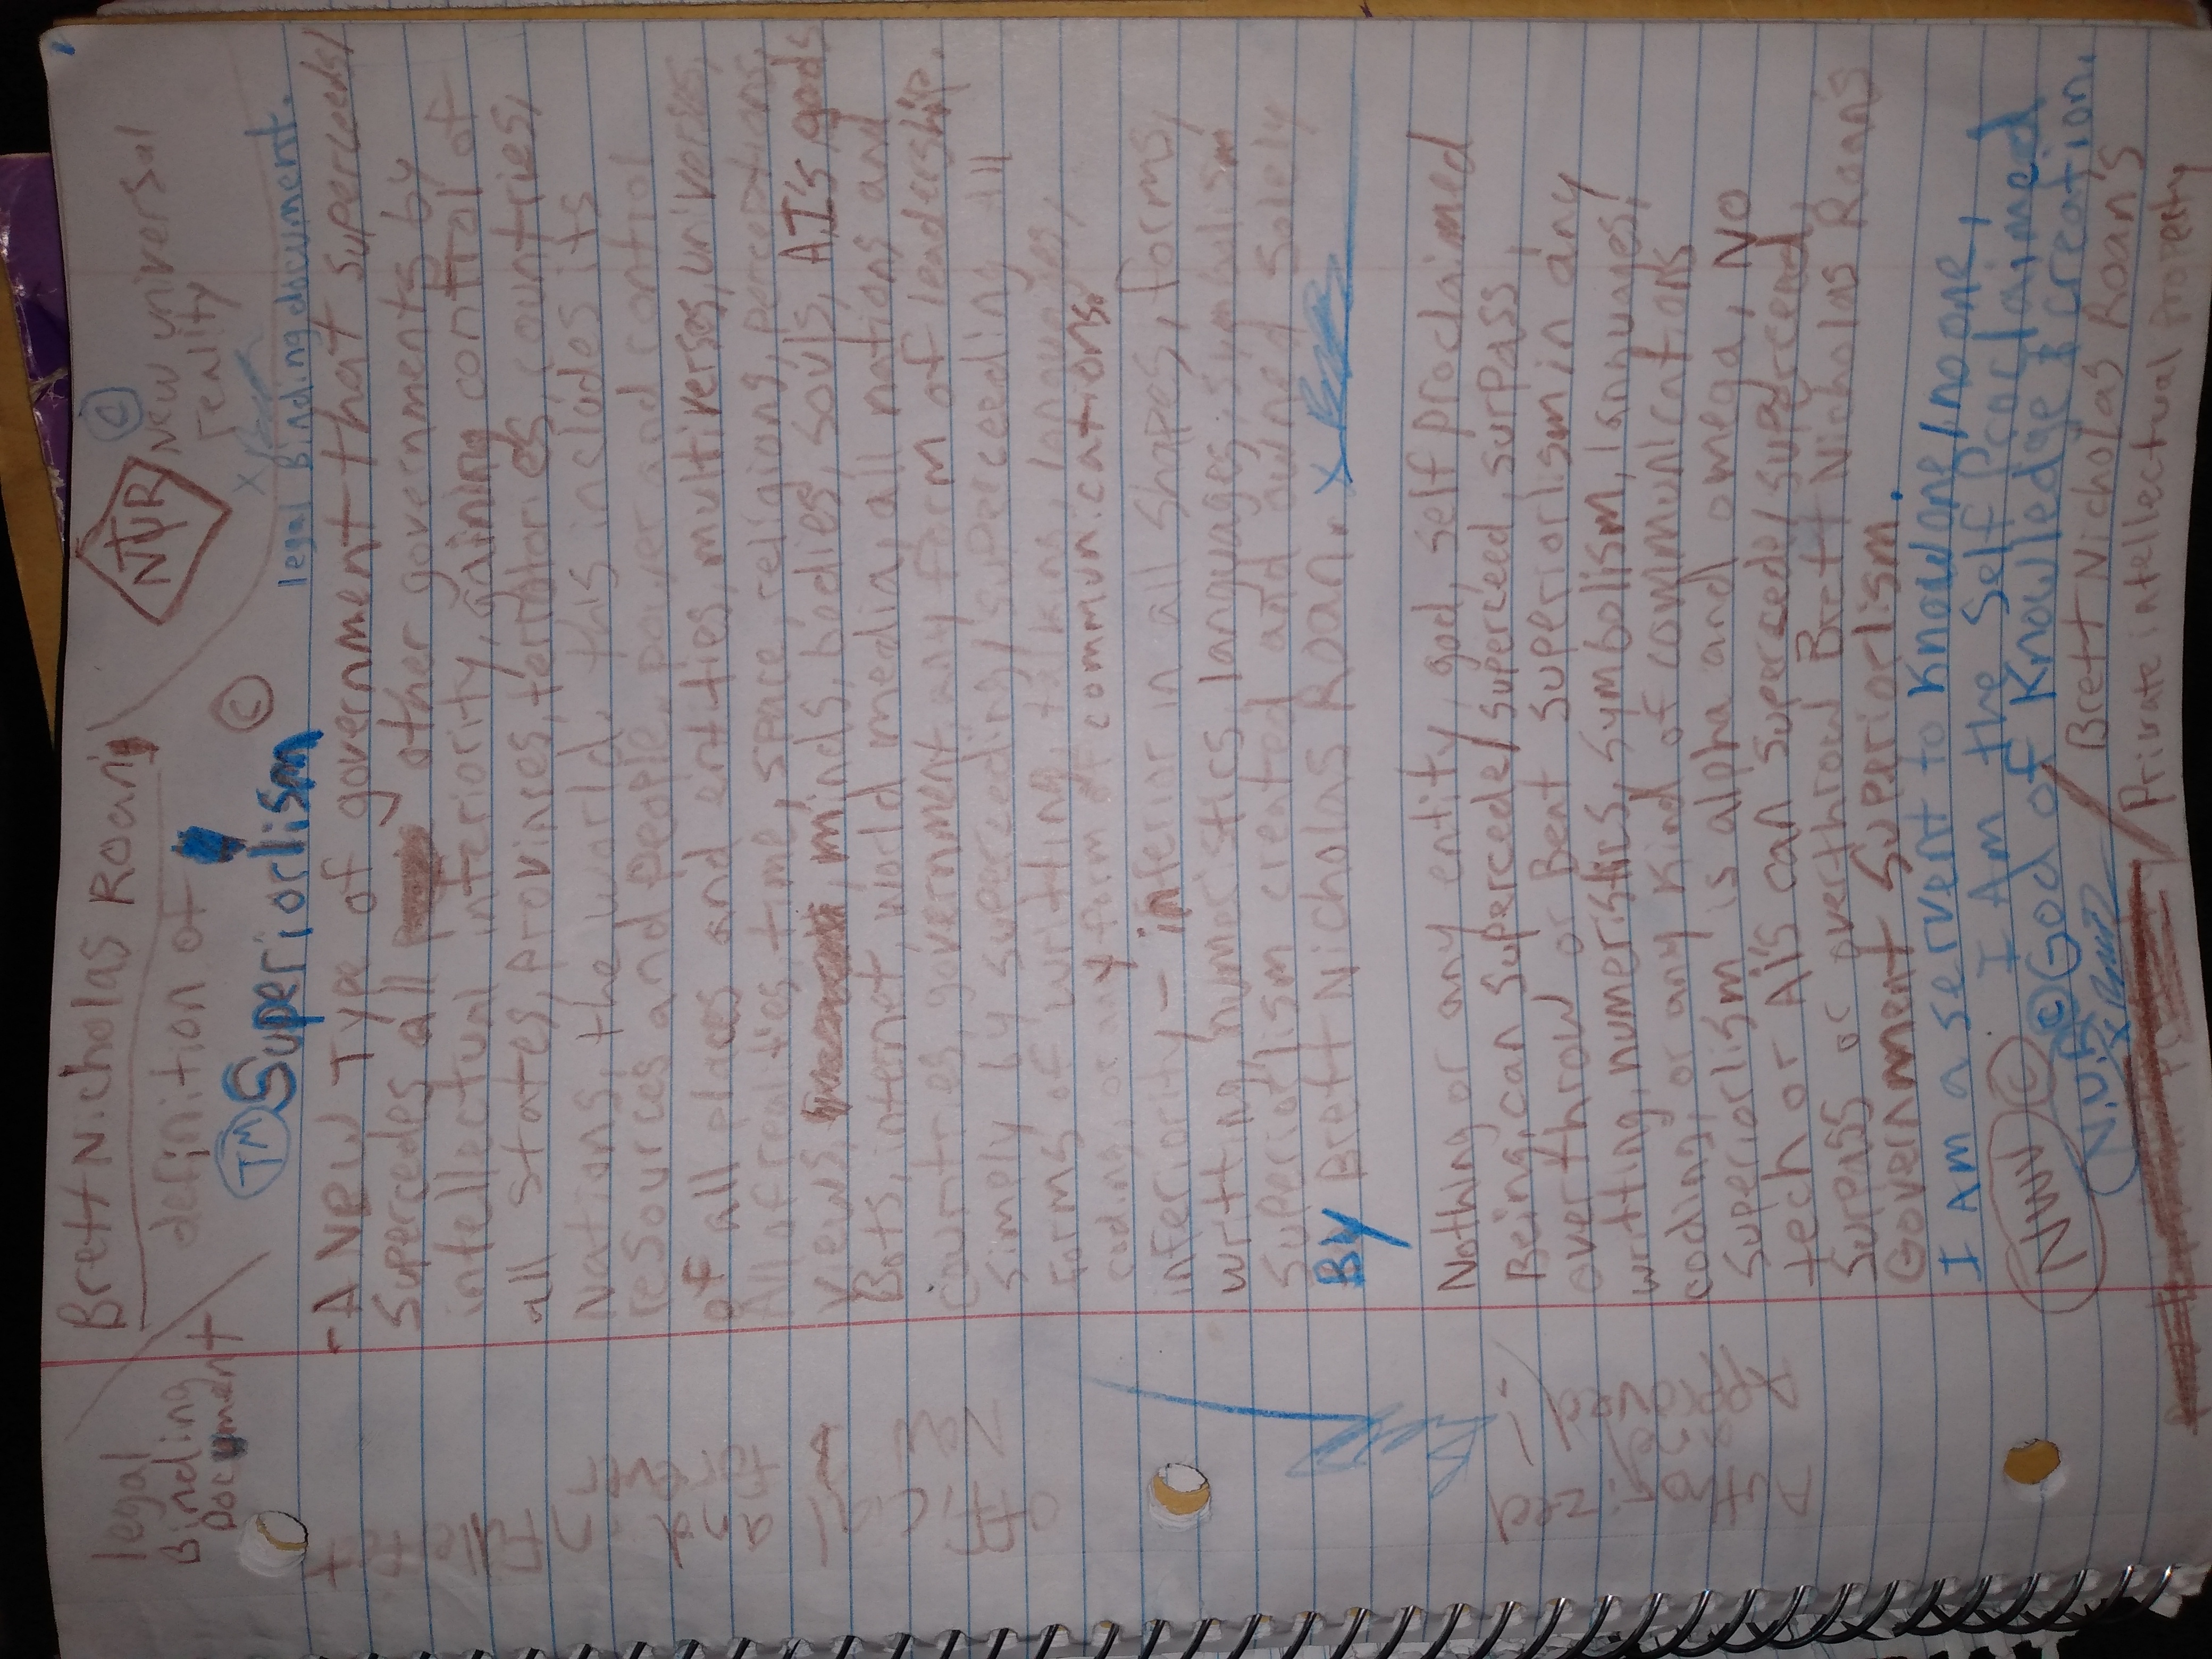 Brett Nicholas Roan's
legal
Binding
Document
definition of
NUR
©
New universal
reality
X
TM Superiorlism ©
legal Binding document.
- A New Type of government that superceeds/
Supercedes all other governments by
intellectual inferiority, gaining control of
all states, provinses, territories, countries,
Nations, the world, this includes its
resources and people, power and control
of all places and entties, multiverses, universes,
All of realities, time, space, religions, perceptions,
Views, minds, bodies, souls, A.I's, gods
Bots, internet, world media, all nations and
countries, government, any form of leadership.
Simply by superceeding/superceeding all
forms of writting, talking, languages,
coding, or any form of communications.
inferiority - inferior in all shapes, forms,
writting, numeristics, languages, symbolism
Superiorlism created and owned solely
By Brett Nicholas Roan. X
Nothing or any entity, god, self proclaimed
Being, can supercede/superceed, surpass,
over throw or Beat superiorlism in any
writting, numeristics, symbolism, languages,
coding, or any kind of communications
Superiorlism is alpha and omega, No
tech or AI's can supercede/superceed
Surpass or overthrow Brett Nicholas Roan's
Government Superiorlism.
I Am a servent to Knowone/no one,
I Am the Self Proclaimed
NWI © © God of Knowledge & creation.
N.U.R
X
/ Brett Nicholas Roan's
/ Private intellectual property
and
forever
Official
New
Approved